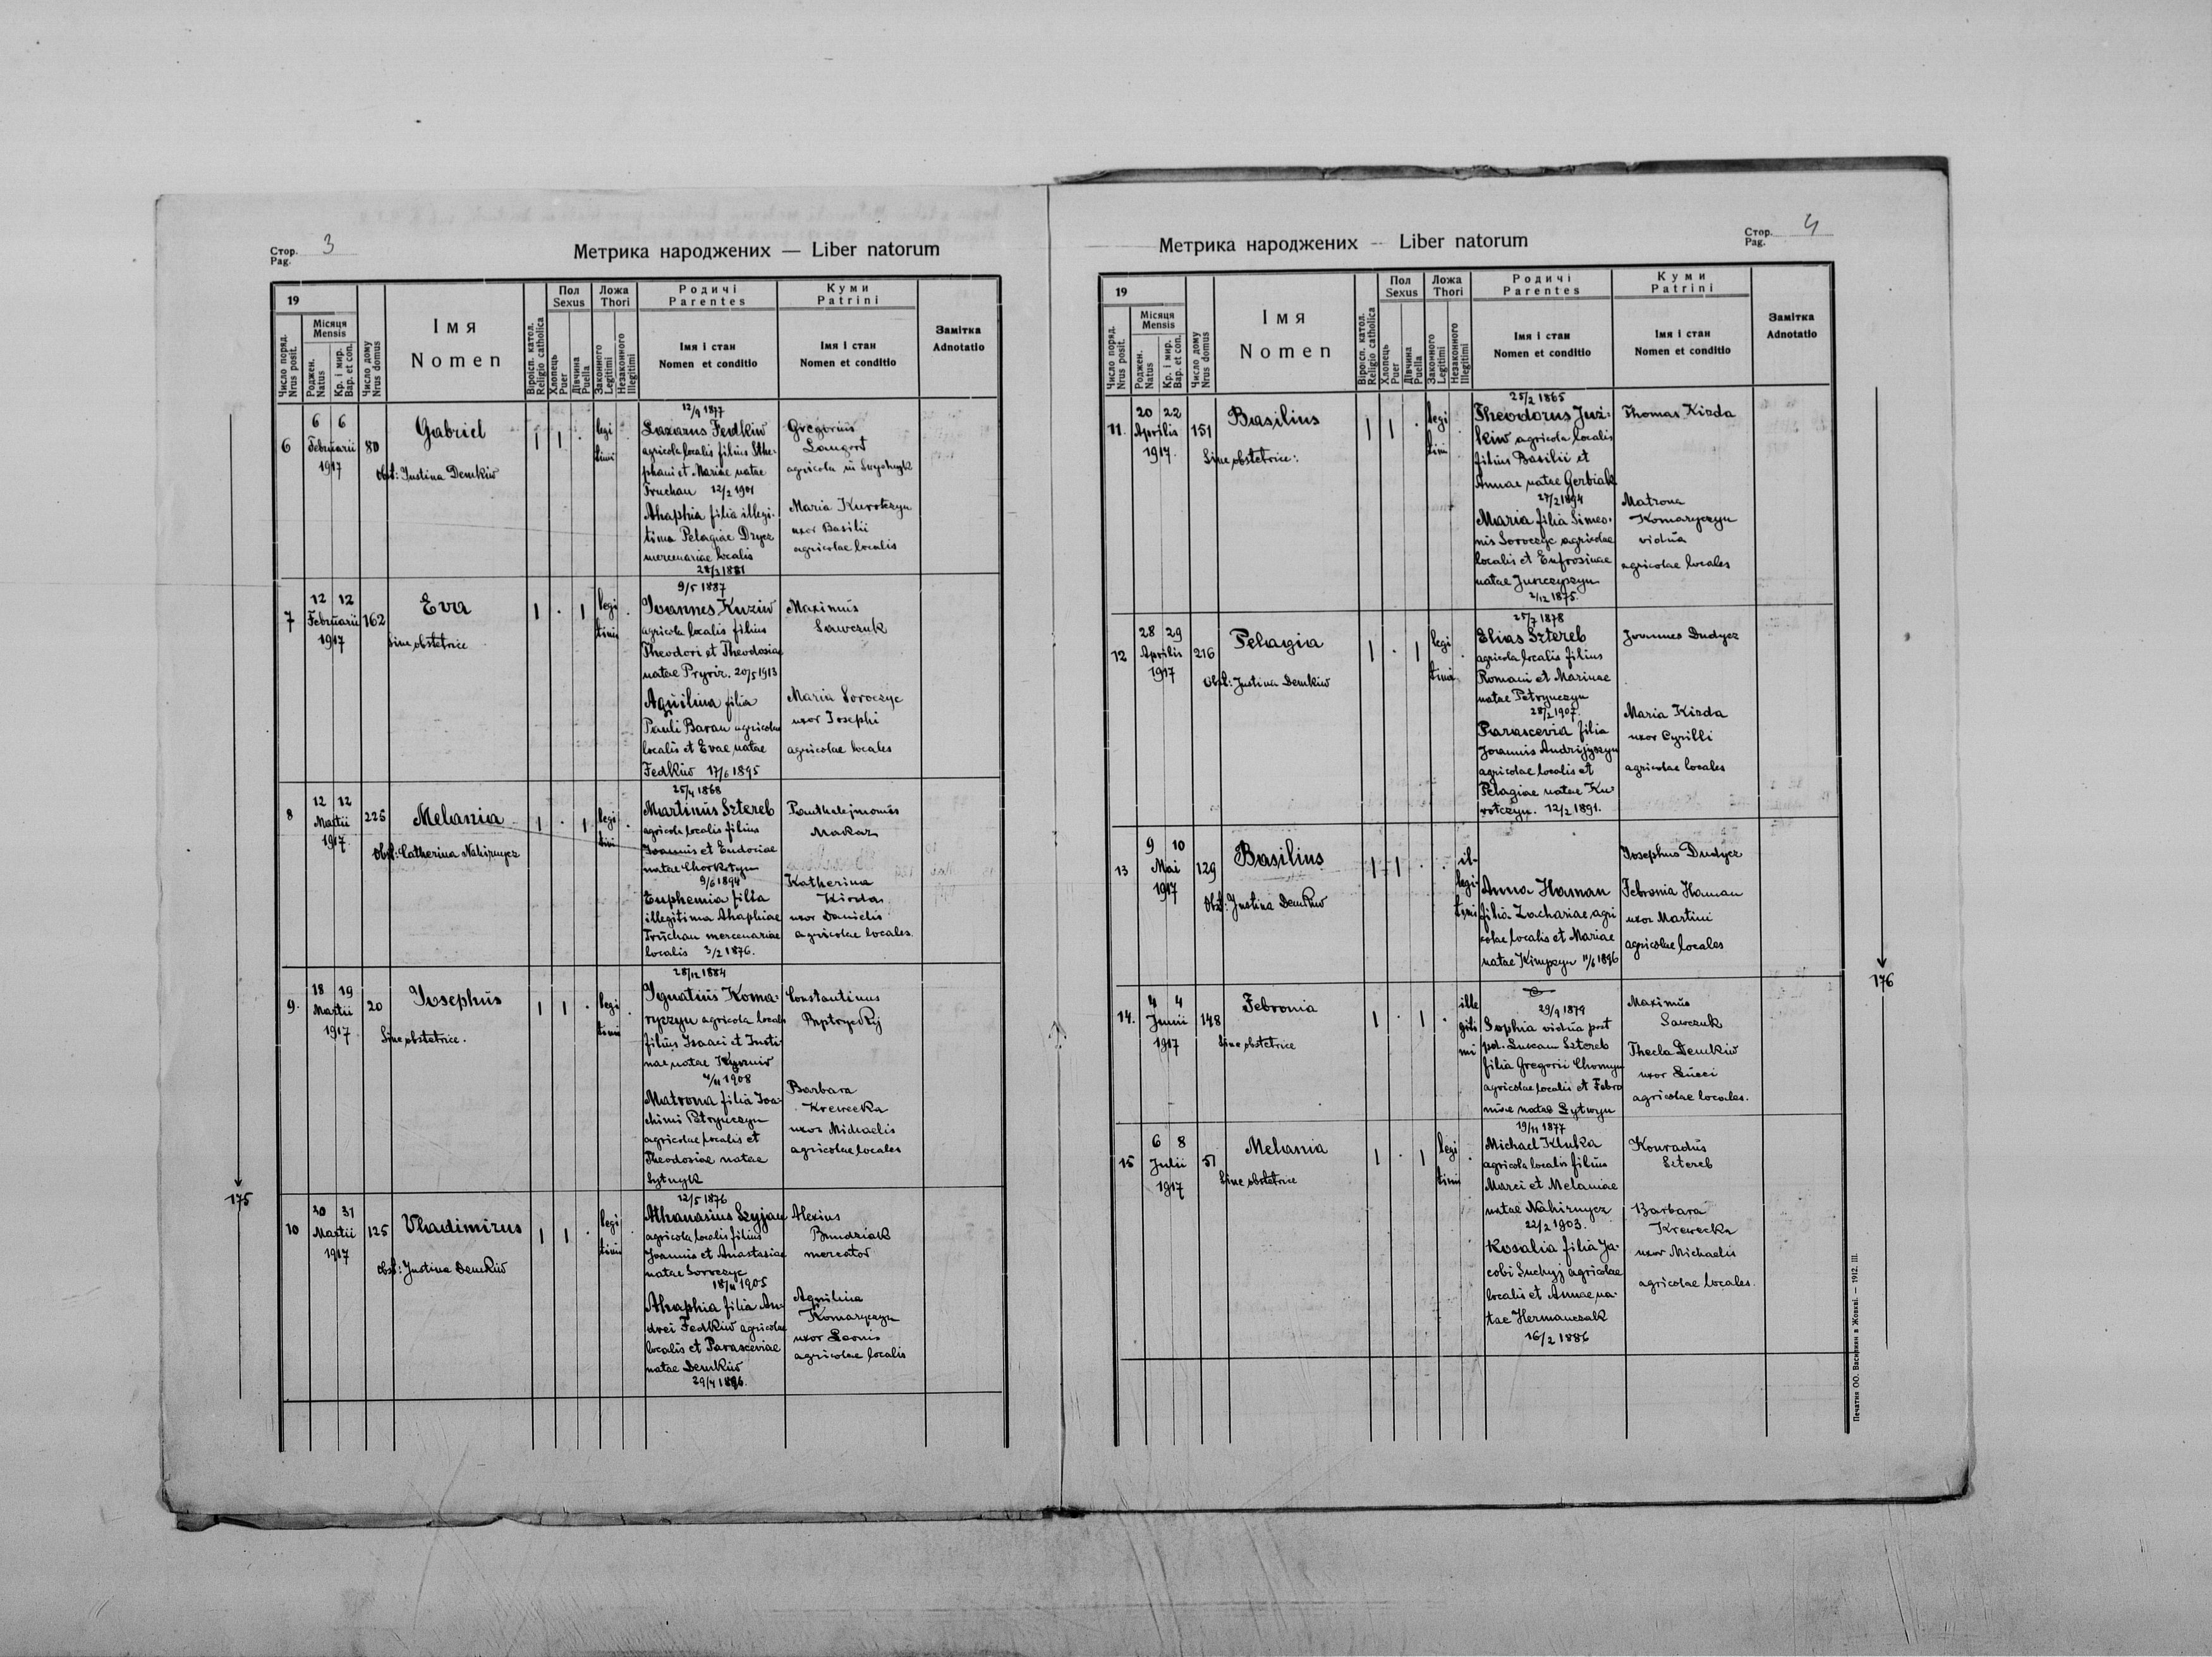 Стор. Pag. 3
Метрика народжених — Liber natorum
19
Число поряд. Nrus posit.
Місяця Mensis
Роджен. Natus
Кр. і мир. Bap. et con.
Число дому Nrus domus
Імя
Nomen
Віроісп. катол. Religio catholica
Пол Sexus
Хлопець Puer
Дівчина Puella
Ложа Thori
Законного Legitimi
Незаконного Illegitimi
Родичі Parentes
Імя і стан
Nomen et conditio
Куми Patrini
Імя і стан
Nomen et conditio
Замітка
Adnotatio
6
6 6
Februarii
1917
80
Gabriel
Obst: Justina Demkiw
1 1 .
legi
timi
12/9 1877
Lazarus Fedkiw
agricola localis filius Ste-
phani et Mariae natae
Truchan 12/2 1901
Ahaphia filia illegi-
tima Pelagiae Dzycz
mercenariae localis
28/3 1881
Gregorius
Langord
agricola in
Maria Kurotczyn
uxor Basilii
agricolae localis
7
12 12
Februarii
1917
162
Eva
Sine obstetrice
1 . 1
legi
timi
.
9/5 1887
Ioannes Kuziw
agricola localis filius
Theodori et Theodosiae
natae Pryriz. 20/5 1913
Aquilina filia
Pauli Baran agricolae
localis et Evae natae
Fedkiw 17/6 1895
Maximus
Sawczuk
Maria Soroczyc
uxor Josephi
agricolae locales
8
12 12
Martii
1917.
225
Melania
Obst: Catherina Nahirnycz
1 . 1
legi
timi
.
25/4 1868
Martinus Sztereb
agricola localis filius
Joannis et Eudociae
natae Chorkotyn
9/6 1894
Euphemia filia
illegitima Ahaphiae
Truchan mercenariae
localis 3/2 1876.
Panthalejmonus
Makar
Katherina
Kizda
uxor Danielis
agricolae locales.
9.
18 19
Martii
1917.
20
Josephus
Sine obstetrice.
1 1 .
legi
timi
.
28/12 1884
Ignatius Koma-
ryczyn agricola localis
filius Isaaci et Justi-
nae natae
4/11 1908
Matrona filia Joa-
chimi Petrynczyn
agricolae localis et
Theodosiae natae
Sytnyk
Constantinus
Barbara
Krewecka
uxor Michaelis
agricolae locales
10
30 31
Martii
1917
125
Vladimirus
Obst: Justina Demkiw
1 1 .
legi
timi
12/5 1876
Athanasius Szyjan
agricola localis filius
Joannis et Anastasiae
natae Soroczyc
18/11 1905
Ahaphia filia An-
drei Fedkiw agricolae
localis et Parasceviae
natae Demkiw
29/4 1886.
Alexius
Bundziak
mercator
Aquilina
Komaryczyn
uxor Leonis
agricolae localis
175
Стор. Pag. 4
Метрика народжених — Liber natorum
19
Число поряд. Nrus posit.
Місяця Mensis
Роджен. Natus
Кр. і мир. Bap. et con.
Число дому Nrus domus
Імя
Nomen
Віроісп. катол. Religio catholica
Пол Sexus
Хлопець Puer
Дівчина Puella
Ложа Thori
Законного Legitimi
Незаконного Illegitimi
Родичі Parentes
Імя і стан
Nomen et conditio
Куми Patrini
Імя і стан
Nomen et conditio
Замітка
Adnotatio
11.
20 22
Aprilis
1917.
151
Basilius
Sine obstetrice:
1 1 .
legi
timi
25/2 1865
Theodorus Juz-
kiw agricola localis
filius Basilii et
Annae natae Gerbiak
27/2 1894
Maria filia Simeo-
nis Soroczyc agricolae
localis et Eufrosinae
natae Juszczyszyn
2/12 1875.
Thomas Kizda
Matrona
Komaryczyn
vidua
agricolae locales
12
28 29
Aprilis
1917
216
Pelagia
Obst: Justina Demkiw
1 . 1
legi
timi
.
25/7 1878
Elias Sztereb
agricola localis filius
Romani et Marinae
natae Petrynczyn
28/2 1907.
Parascevia filia
Joannis Andrijyszyn
agricolae localis et
Pelagiae natae Ku-
rotczyn. 12/2 1891.
Joannes Dudycz
Maria Kizda
uxor Cyrilli
agricolae locales
13
9 10
Mai
1917
129
Basilius
Obst: Justina Demkiw
1 1 . .
il-
legi-
timi
Anna Haman
filia Zachariae agri
colae localis et Mariae
natae Kinyszyn 11/6 1896
Josephus Dudycz
Febronia Haman
uxor Martini
agricolae locales
14.
4 4
Junii
1917
148
Febronia
Sine obstetrice
1 . 1 .
ille
giti
mi
29/9 1879
Sophia vidua post
pd. Lucam Sztereb
filia Gregorii Chomyn
agricolae localis et Febro
niae natae Lytwyn
Maximus
Sawczuk
Thecla Demkiw
uxor Lucci
agricolae locales.
15
6 8
Julii
1917
51
Melania
Sine obstetrice
1 . 1
legi
timi
.
19/11 1877
Michael Kluka
agricola localis filius
Marci et Melaniae
natae Nahirnycz
22/2 1903.
Rosalia filia Ja-
cobi Suchyj agricolae
localis et Annae na-
tae Hermanczak
16/2 1886
Konradus
Sztereb
Barbara
Krewecka
uxor Michaelis
agricolae locales.
176
Печатня ОО. Василиян в Жовкві. — 1912. III.